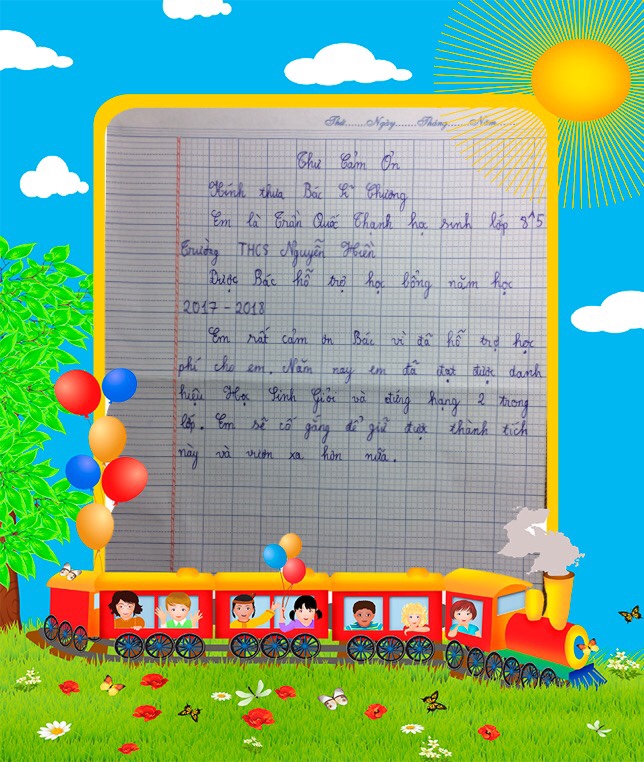 Thứ.......Ngày.......Tháng.......Năm.......
Thư Cảm Ơn
Kính thưa Bác Lĩ Chương
Em là Trần Quốc Thanh học sinh lớp 8^5
Trường THCS Nguyễn Hiền
Được Bác hỗ trợ học bổng năm học
2017 - 2018
Em rất cảm ơn Bác vì đã hỗ trợ học
phí cho em. Năm nay em đã đạt được danh
hiệu Học Sinh Giỏi và đứng hạng 2 trong
lớp. Em sẽ cố gắng để giữ được thành tích
này và vươn xa hơn nữa.